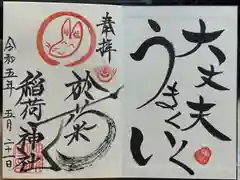 大丈夫
うまくいく
い
奉拝
於菜
稲荷神社
令和五年
五月二十一日